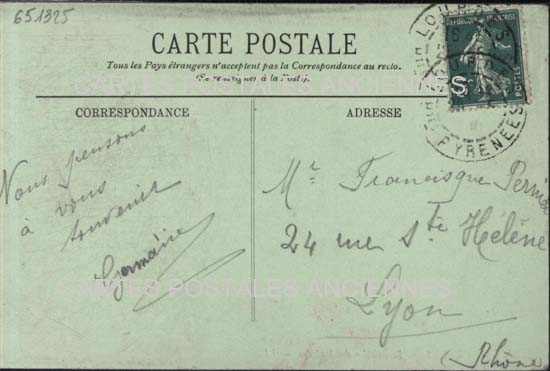 651325
CARTE POSTALE
Tous les Pays étrangers n'acceptent pas la Correspondance au recto.
à la Poste
CORRESPONDANCE
ADRESSE
Nous pensons
à vous
souvenir
Germaine
Mr Francisque
24 rue Ste Hélène
Lyon
(Rhône)
LOURDES
PYRENEES
POSTES
CARTES POSTALES ANCIENNES